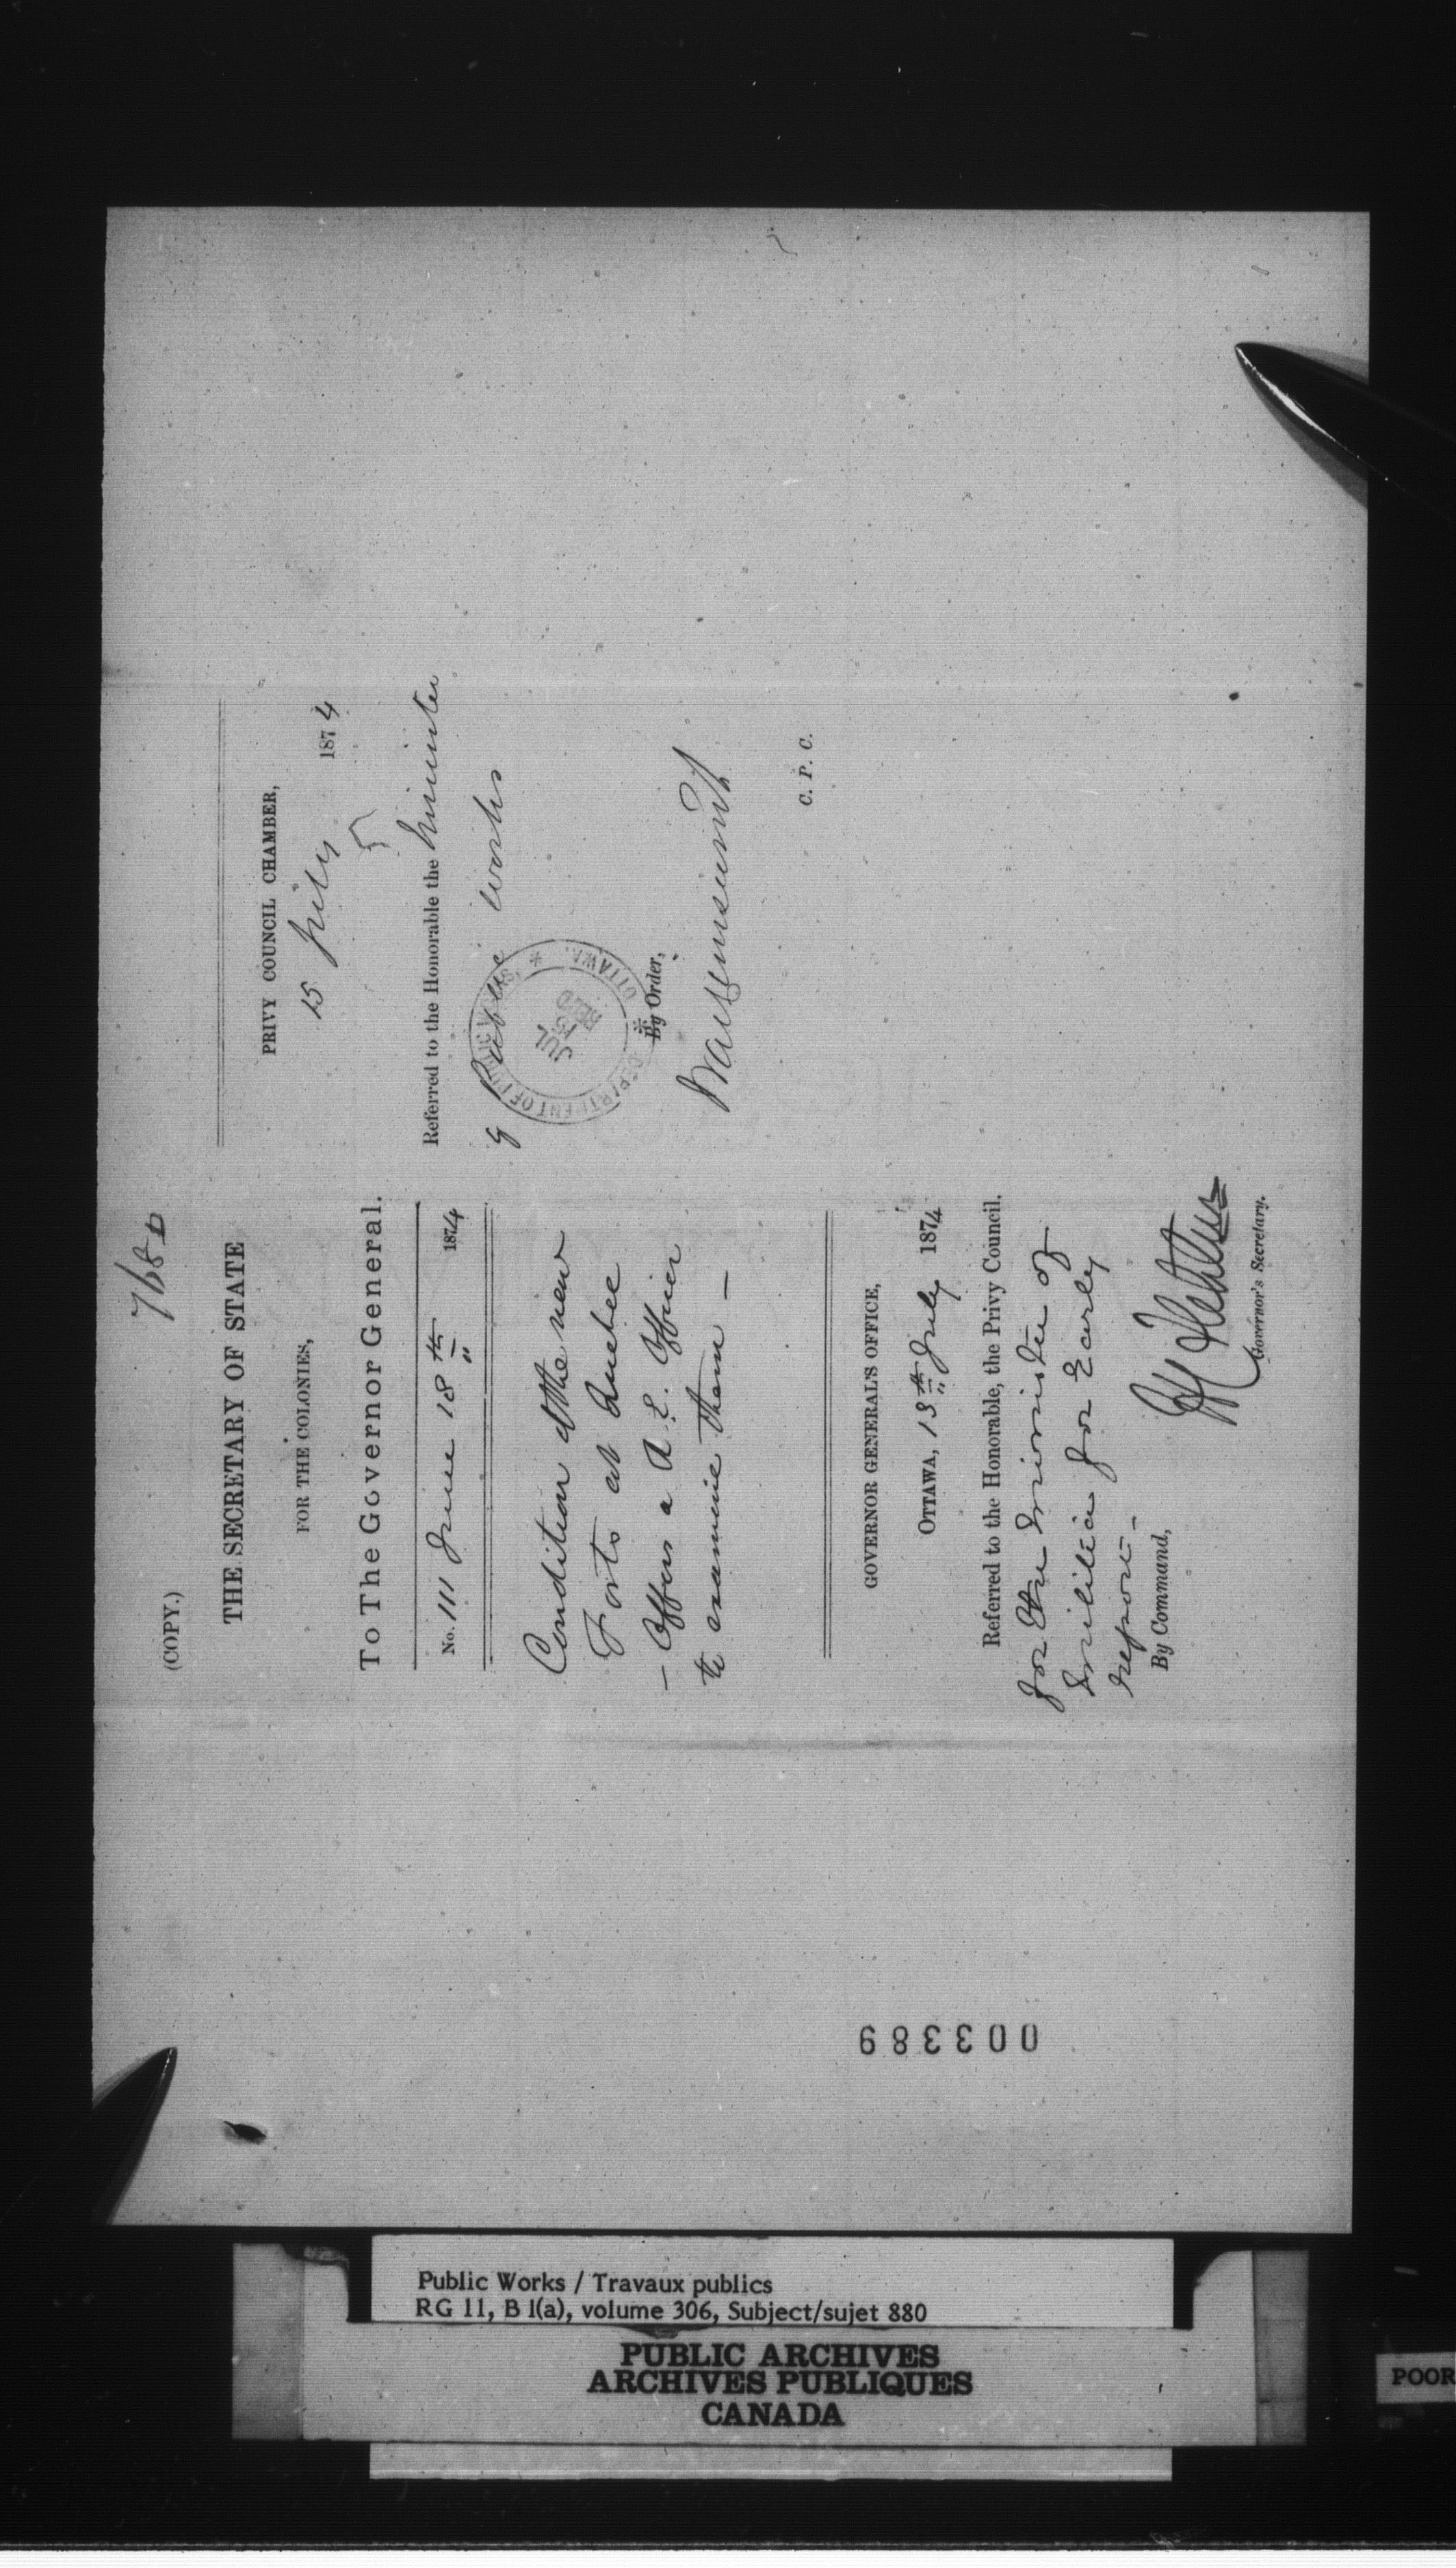 (COPY.)
THE SECRETARY OF STATE
FOR THE COLONIES,
To The Governor General.
No. 111 June 18th 1874
Condition of the new
Forts at Quebec
- Offers a R. E. Officer
to examine them -
GOVERNOR GENERAL'S OFFICE,
OTTAWA, 13th July 1874
Referred to the Honorable, the Privy Council.
for the Minister of
Militia for Early
report -
By Command,
Governor's Secretary.
PRIVY COUNCIL CHAMBER,
15 July 1874
Referred to the Honorable the Minister
of Public Works
DEPARTMENT OF PUBLIC WORKS, * OTTAWA. *
JUL
15
REC'D
By Order,
C. P. C.
003389
Public Works / Travaux publics
RG 11, B 1(a), volume 306, Subject/sujet 880
PUBLIC ARCHIVES
ARCHIVES PUBLIQUES
CANADA
POOR